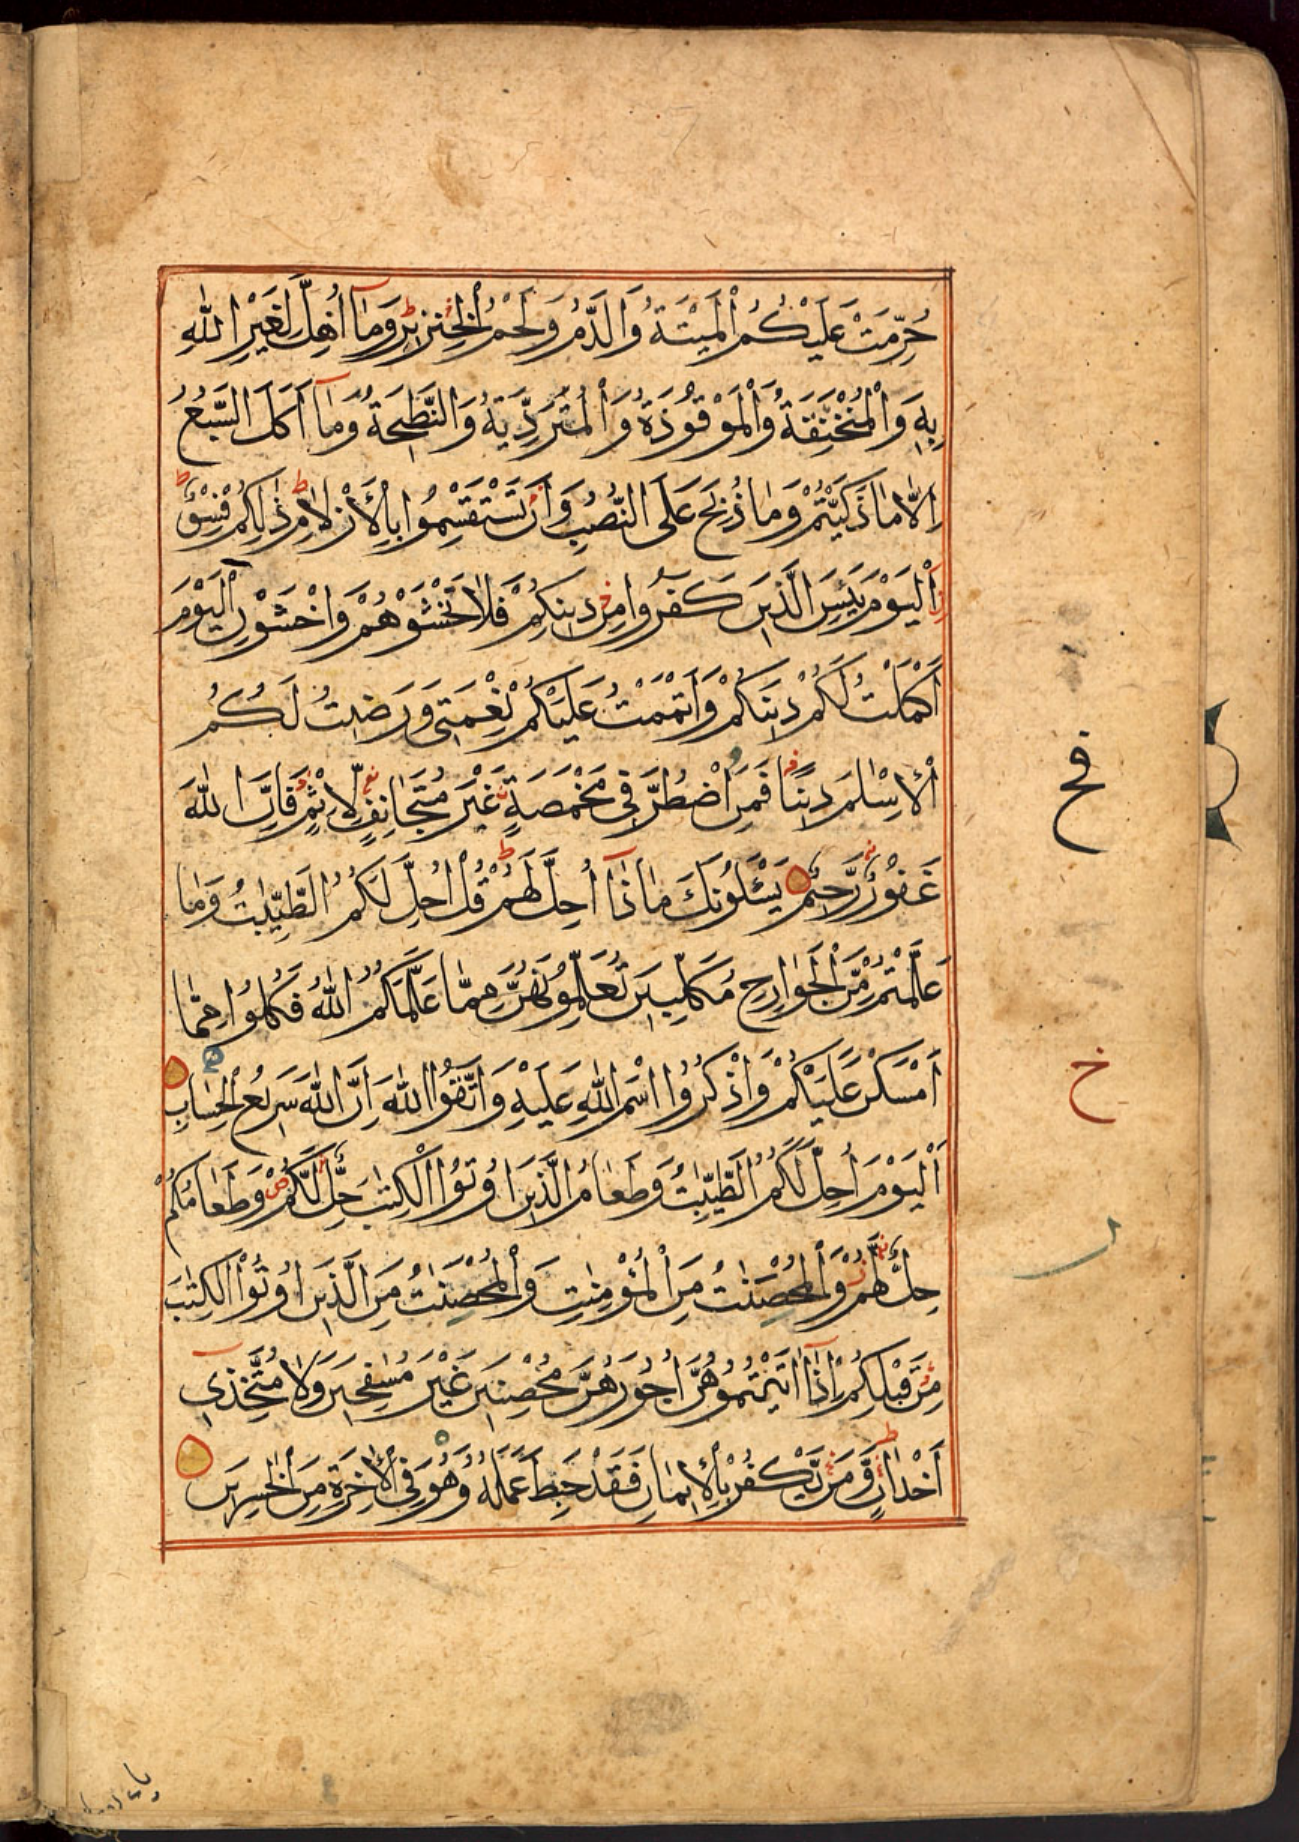 حُرِّمَتْ عَلَيْكُمُ الْمَيْتَةُ وَالدَّمُ وَلَحْمُ الْخِنْزِيرِ وَمَآ اُهِلَّ لِغَيْرِ اللّٰهِ
بِهٖ وَالْمُنْخَنِقَةُ وَالْمَوْقُوْذَةُ وَالْمُتَرَدِّيَةُ وَالنَّطِيحَةُ وَمَآ اَكَلَ السَّبُعُ
اِلَّا مَا ذَكَّيْتُمْ وَمَا ذُبِحَ عَلَى النُّصُبِ وَاَنْ تَسْتَقْسِمُوا بِالْاَزْلَامِ ذٰلِكُمْ فِسْقٌ
اَلْيَوْمَ يَئِسَ الَّذِينَ كَفَرُوا مِنْ دِينِكُمْ فَلَا تَخْشَوْهُمْ وَاخْشَوْنِ اَلْيَوْمَ
اَكْمَلْتُ لَكُمْ دِيْنَكُمْ وَاَتْمَمْتُ عَلَيْكُمْ نِعْمَتِي وَرَضِيْتُ لَكُمُ
الْاِسْلٰمَ دِيْنًا فَمَنِ اضْطُرَّ فِي مَخْمَصَةٍ غَيْرَ مُتَجَانِفٍ لِّاِثْمٍ فَاِنَّ اللّٰهَ
غَفُوْرٌ رَّحِيْمٌ يَسْئَلُوْنَكَ مَاذَآ اُحِلَّ لَهُمْ قُلْ اُحِلَّ لَكُمُ الطَّيِّبٰتُ وَمَا
عَلَّمْتُمْ مِّنَ الْجَوَارِحِ مُكَلِّبِيْنَ تُعَلِّمُوْنَهُنَّ مِمَّا عَلَّمَكُمُ اللّٰهُ فَكُلُوْا مِمَّا
اَمْسَكْنَ عَلَيْكُمْ وَاذْكُرُوا اسْمَ اللّٰهِ عَلَيْهِ وَاتَّقُوا اللّٰهَ اِنَّ اللّٰهَ سَرِيْعُ الْحِسَابِ
اَلْيَوْمَ اُحِلَّ لَكُمُ الطَّيِّبٰتُ وَطَعَامُ الَّذِيْنَ اُوْتُوا الْكِتٰبَ حِلٌّ لَّكُمْ وَطَعَامُكُمْ
حِلٌّ لَّهُمْ وَالْمُحْصَنٰتُ مِنَ الْمُؤْمِنٰتِ وَالْمُحْصَنٰتُ مِنَ الَّذِيْنَ اُوْتُوا الْكِتٰبَ
مِنْ قَبْلِكُمْ اِذَآ اٰتَيْتُمُوْهُنَّ اُجُوْرَهُنَّ مُحْصِنِيْنَ غَيْرَ مُسٰفِحِيْنَ وَلَا مُتَّخِذِيْٓ
اَخْدَانٍ وَّمَنْ يَّكْفُرْ بِالْاِيْمَانِ فَقَدْ حَبِطَ عَمَلُهُ وَهُوَ فِي الْاٰخِرَةِ مِنَ الْخٰسِرِيْنَ
خ